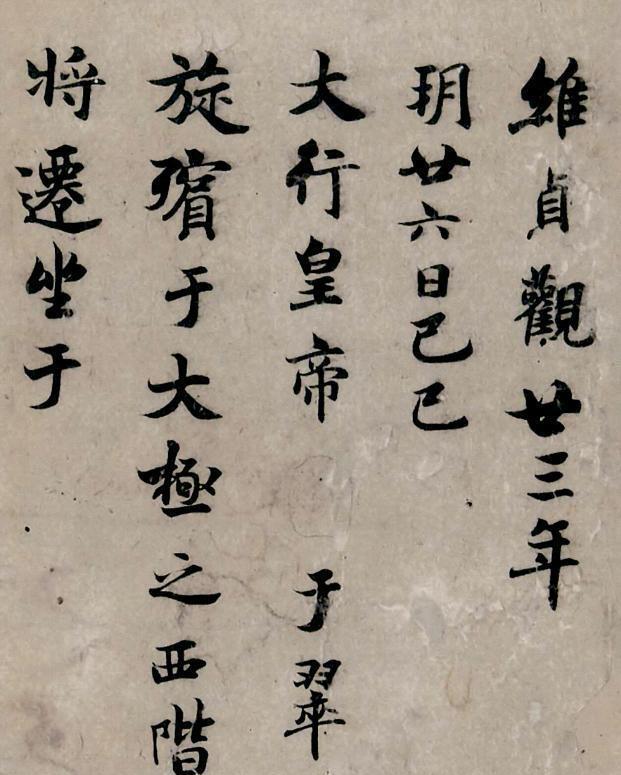 維貞觀廿三年
朔廿六日己巳
大行皇帝 于翠
旋殯于大極之西階
將遷坐于